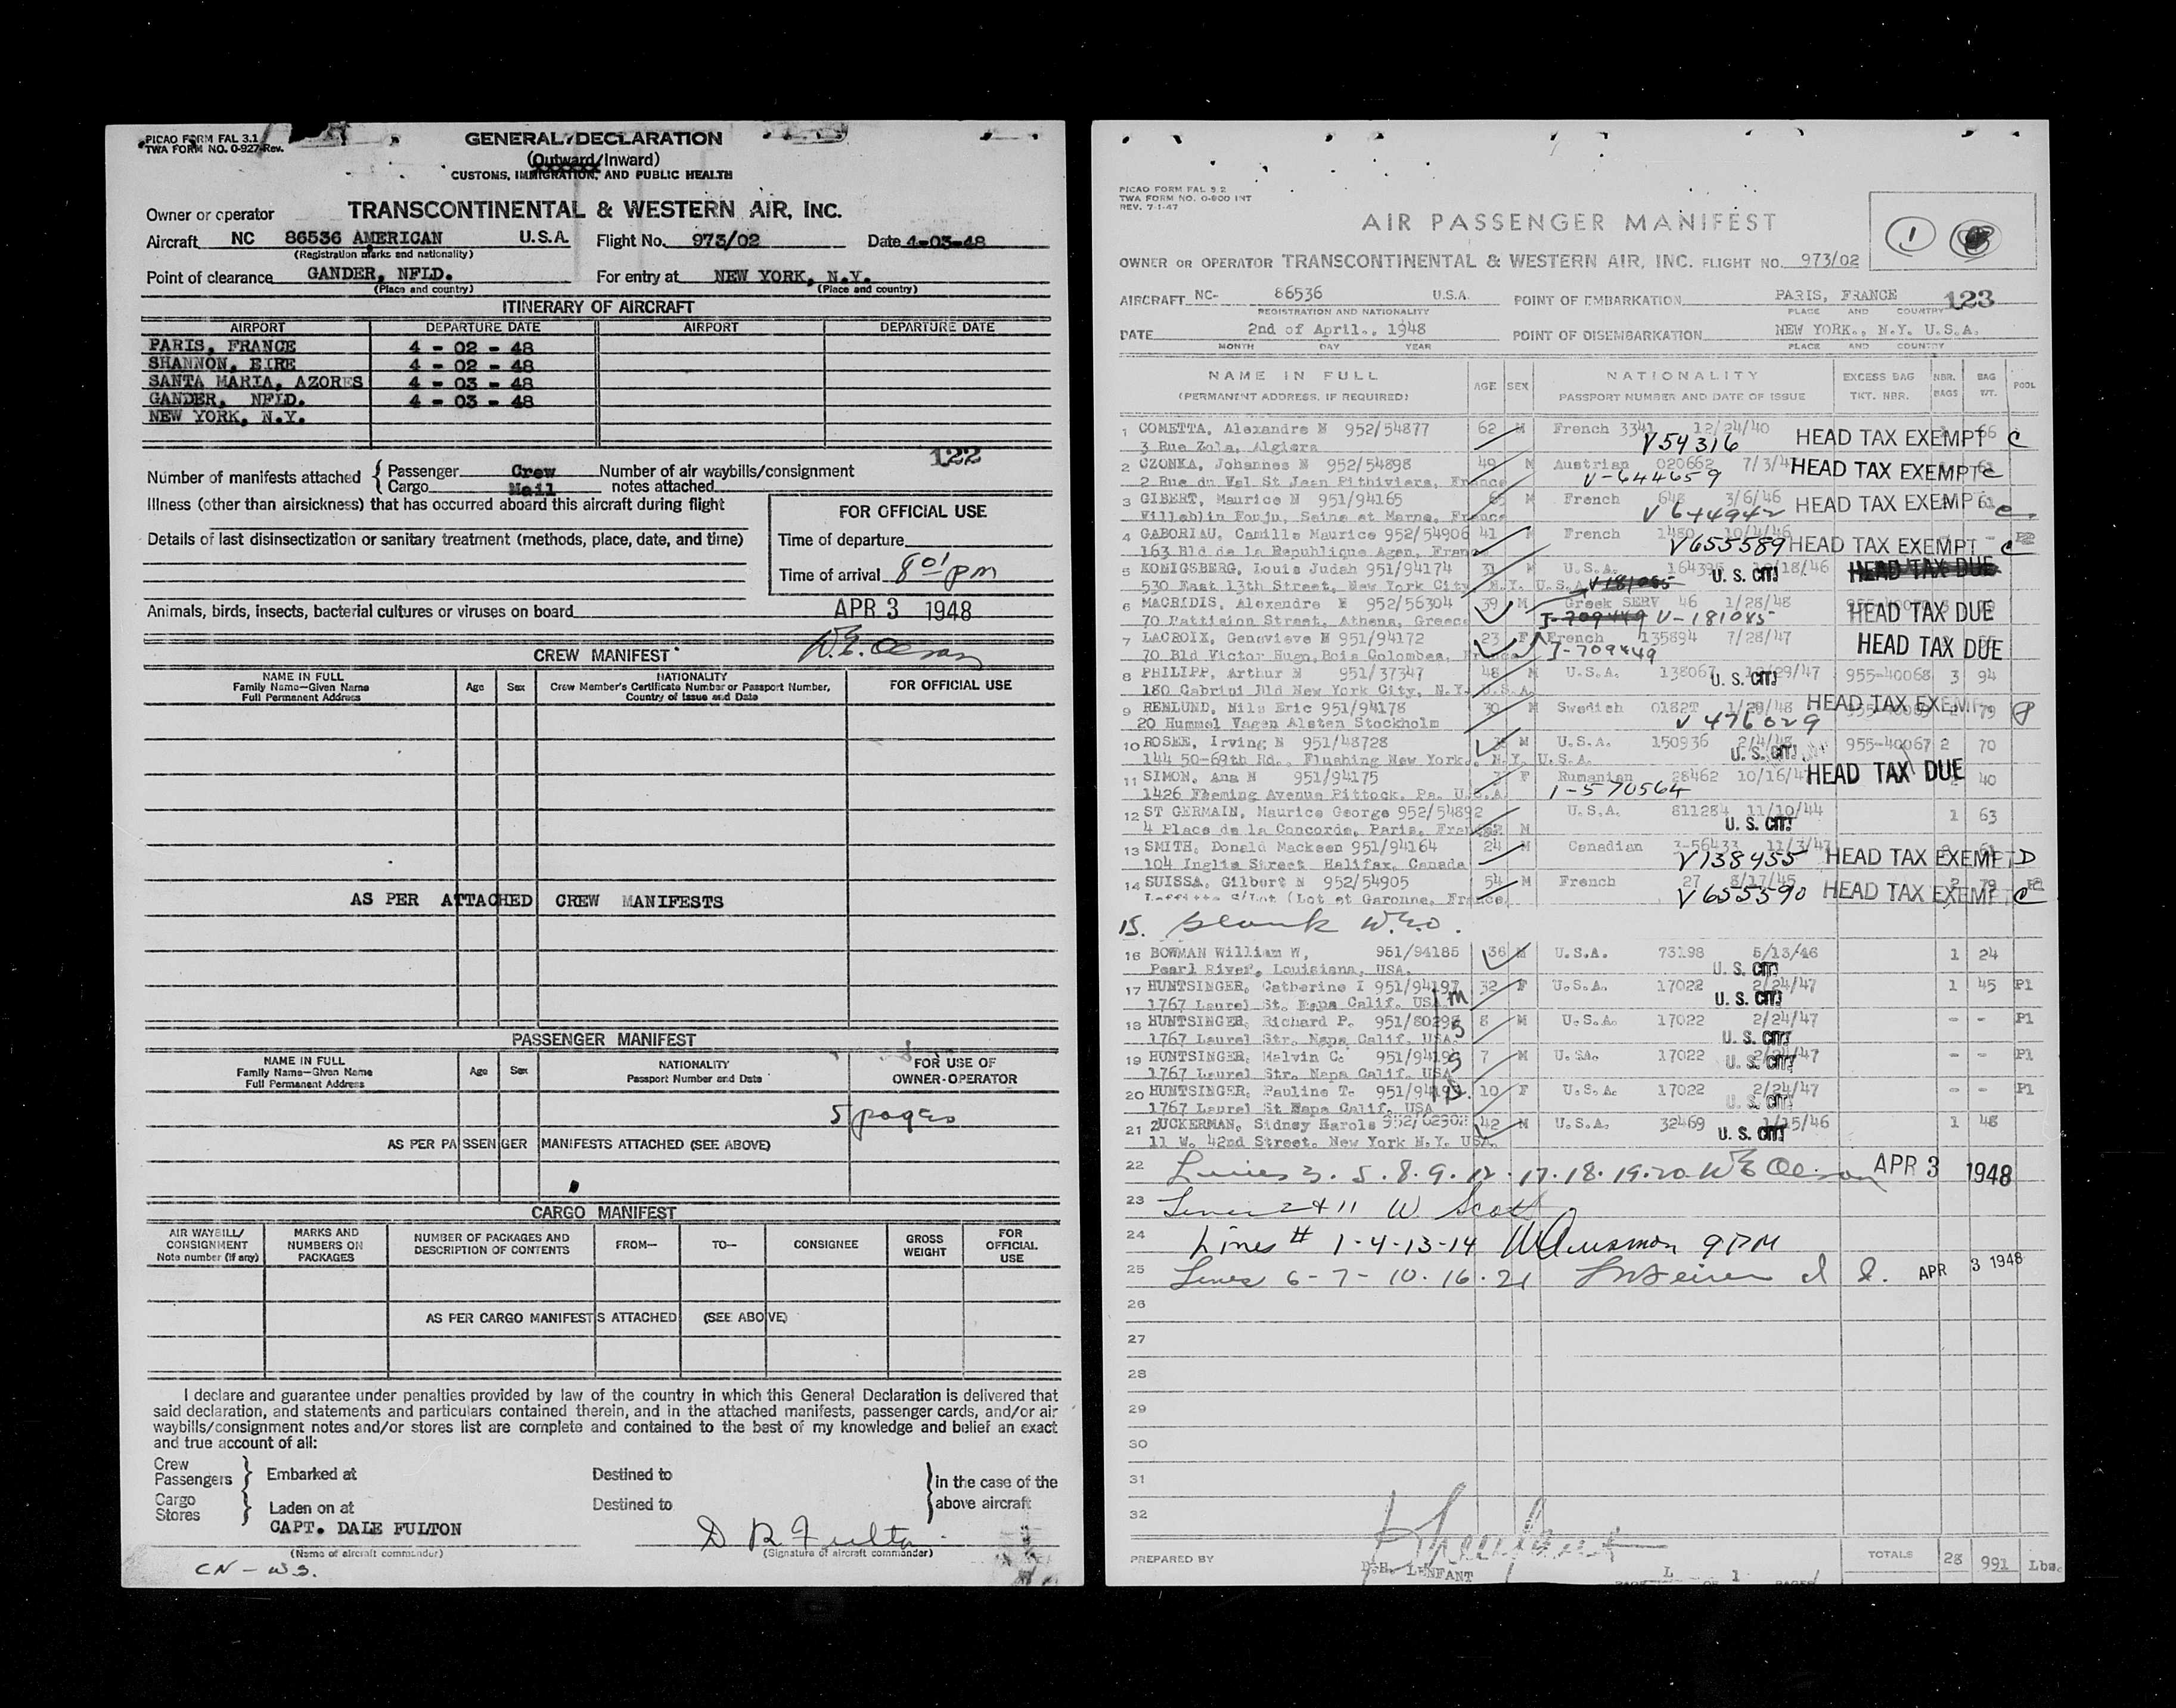 PICAO FORM FAL 3.1
TWA FORM NO. 0-927-Rev.
GENERAL DECLARATION
(Outward/Inward)
CUSTOMS, IMMIGRATION, AND PUBLIC HEALTH
Owner or operator TRANSCONTINENTAL & WESTERN AIR, INC.
Aircraft NC 86536 AMERICAN U.S.A. Flight No. 973/02 Date 4-03-48
(Registration marks and nationality)
Point of clearance GANDER, NFLD. For entry at NEW YORK, N.Y.
(Place and country) (Place and country)
ITINERARY OF AIRCRAFT
AIRPORT DEPARTURE DATE AIRPORT DEPARTURE DATE
PARIS, FRANCE 4 - 02 - 48
SHANNON, EIRE 4 - 02 - 48
SANTA MARIA, AZORES 4 - 03 - 48
GANDER, NFLD. 4 - 03 - 48
NEW YORK, N.Y.
122
Number of manifests attached { Passenger Crew Number of air waybills/consignment
Cargo Mail notes attached
Illness (other than airsickness) that has occurred aboard this aircraft during flight
Details of last disinsectization or sanitary treatment (methods, place, date, and time)
Animals, birds, insects, bacterial cultures or viruses on board
FOR OFFICIAL USE
Time of departure
Time of arrival 8 01 pm
APR 3 1948
W.E. Olson
CREW MANIFEST
NAME IN FULL
Family Name—Given Name
Full Permanent Address
Age Sex
NATIONALITY
Crew Member's Certificate Number or Passport Number,
Country of Issue and Date
FOR OFFICIAL USE
AS PER ATTACHED CREW MANIFESTS
PASSENGER MANIFEST
NAME IN FULL
Family Name—Given Name
Full Permanent Address
Age Sex
NATIONALITY
Passport Number and Date
FOR USE OF
OWNER-OPERATOR
5 pages
AS PER PASSENGER MANIFESTS ATTACHED (SEE ABOVE)
CARGO MANIFEST
AIR WAYBILL/
CONSIGNMENT
Note number (if any)
MARKS AND
NUMBERS ON
PACKAGES
NUMBER OF PACKAGES AND
DESCRIPTION OF CONTENTS
FROM— TO— CONSIGNEE
GROSS
WEIGHT
FOR
OFFICIAL
USE
AS PER CARGO MANIFESTS ATTACHED (SEE ABOVE)
I declare and guarantee under penalties provided by law of the country in which this General Declaration is delivered that
said declaration, and statements and particulars contained therein, and in the attached manifests, passenger cards, and/or air
waybills/consignment notes and/or stores list are complete and contained to the best of my knowledge and belief an exact
and true account of all:
Crew
Passengers } Embarked at Destined to } in the case of the
Cargo
Stores } Laden on at Destined to above aircraft
CAPT. DALE FULTON D R Fulton
(Name of aircraft commander) (Signature of aircraft commander)
CN - WS.
PICAO FORM FAL 3.2
TWA FORM NO. 0-800 INT
REV. 7-1-47
AIR PASSENGER MANIFEST
1
OWNER OR OPERATOR TRANSCONTINENTAL & WESTERN AIR, INC. FLIGHT NO. 973/02
AIRCRAFT NC- 86536 U.S.A. POINT OF EMBARKATION PARIS, FRANCE 123
REGISTRATION AND NATIONALITY PLACE AND COUNTRY
DATE 2nd of April., 1948 POINT OF DISEMBARKATION NEW YORK., N.Y. U.S.A.
MONTH DAY YEAR PLACE AND COUNTRY
NAME IN FULL AGE SEX NATIONALITY EXCESS BAG NBR. BAG POOL
(PERMANENT ADDRESS, IF REQUIRED) PASSPORT NUMBER AND DATE OF ISSUE TKT. NBR. BAGS WT.
1 COMETTA, Alexandre M 952/54877 62 M French 3341 12/24/40 HEAD TAX EXEMPT 66 C
3 Rue Zola, Algiers V54316
2 CZONKA, Johannes M 952/54898 49 M Austrian 020662 7/3/47 HEAD TAX EXEMPT C 61
2 Rue du Val St Jean Pithiviers, France V-644659
3 GIBERT, Maurice M 951/94165 65 M French 648 3/6/46 HEAD TAX EXEMPT 61 C
Villeblin Fouju, Seine et Marne, France V644942
4 GABORIAU, Camille Maurice 952/54906 41 M French 1480 10/4/46 HEAD TAX EXEMPT C P2
163 Bld de la Republique Agen, France V655589
5 KONIGSBERG, Louis Judah 951/94174 31 M U.S.A. 164395 /18/46 U. S. CIT. HEAD TAX DUE
530 East 13th Street, New York City N.Y. U.S.A. V181085
6 MACRIDIS, Alexandre M 952/56304 39 M Greek SERV 46 1/28/48 HEAD TAX DUE
70 Pattision Street, Athens, Greece I-709449 V-181085
7 LACROIX, Genevieve M 951/94172 23 F French 135894 7/28/47 HEAD TAX DUE
70 Bld Victor Hugo, Bois Colombes, France I-709449
8 PHILIPP, Arthur M 951/37347 48 M U.S.A. 138067 12/29/47 U. S. CIT. 955-40068 3 94
180 Cabrini Bld New York City, N.Y. U.S.A.
9 RENLUND, Nils Eric 951/94178 30 M Swedish 01827 1/28/48 HEAD TAX EXEMPT 79 P
20 Hummel Vagen Alsten Stockholm V476029
10 ROSEE, Irving M 951/48728 M U.S.A. 150936 2/4/48 U. S. CIT. 955-40067 2 70
144 50-69th Rd., Flushing New York., N.Y. U.S.A.
11 SIMON, Ana M 951/94175 F Rumanian 28462 10/16/47 HEAD TAX DUE 40
1426 Fleming Avenue Pittock, Pa. U.S.A. I-570564
12 ST GERMAIN, Maurice George 952/54892 M U.S.A. 811284 11/10/44 U. S. CIT. 1 63
4 Place de la Concorde, Paris, France
13 SMITH, Donald Mackeen 951/94164 24 M Canadian 3-56433 11/3/47 HEAD TAX EXEMPT 61 D
104 Inglis Street Halifax, Canada V138455
14 SUISSA, Gilbert M 952/54905 54 M French 27 8/17/45 HEAD TAX EXEMPT 2 79 P2 C
Laffitte S/Lot (Lot et Garonne, France) V655590
15. blank W.E.O.
16 BOWMAN William W, 951/94185 36 M U.S.A. 73198 5/13/46 1 24
Pearl River, Louisiana, USA. U. S. CIT.
17 HUNTSINGER, Catherine I 951/94197 32 F U.S.A. 17022 2/24/47 1 45 P1
1767 Laurel St. Napa Calif. USA m U. S. CIT.
18 HUNTSINGER, Richard P. 951/80298 8 M U.S.A. 17022 2/24/47 - - P1
1767 Laurel Str. Napa Calif. USA. S U. S. CIT.
19 HUNTSINGER, Melvin C. 951/94195 7 M U.SA. 17022 2/24/47 - - P1
1767 Laurel Str. Napa Calif. USA S U. S. CIT.
20 HUNTSINGER, Pauline T. 951/94192 10 F U.S.A. 17022 2/24/47 - - P1
1767 Laurel St Napa Calif. USA D. U. S. CIT.
21 ZUCKERMAN, Sidney Harols 952/02902 42 M U.S.A. 32469 1/15/46 1 48
11 W. 42nd Street. New York N.Y. USA. U. S. CIT.
22 Lines 3. 5. 8. 9. 12. 17. 18. 19. 20. W E Olson APR 3 1948
23 Lines 2 & 11 W Scott
24 Lines # 1-4-13-14 9 PM
25 Lines 6-7-10.16.21 APR 3 1948
26
27
28
29
30
31
32
PREPARED BY D.H. LENFANT TOTALS 28 991 Lbs.
PAGE 1 OF 1 PAGES